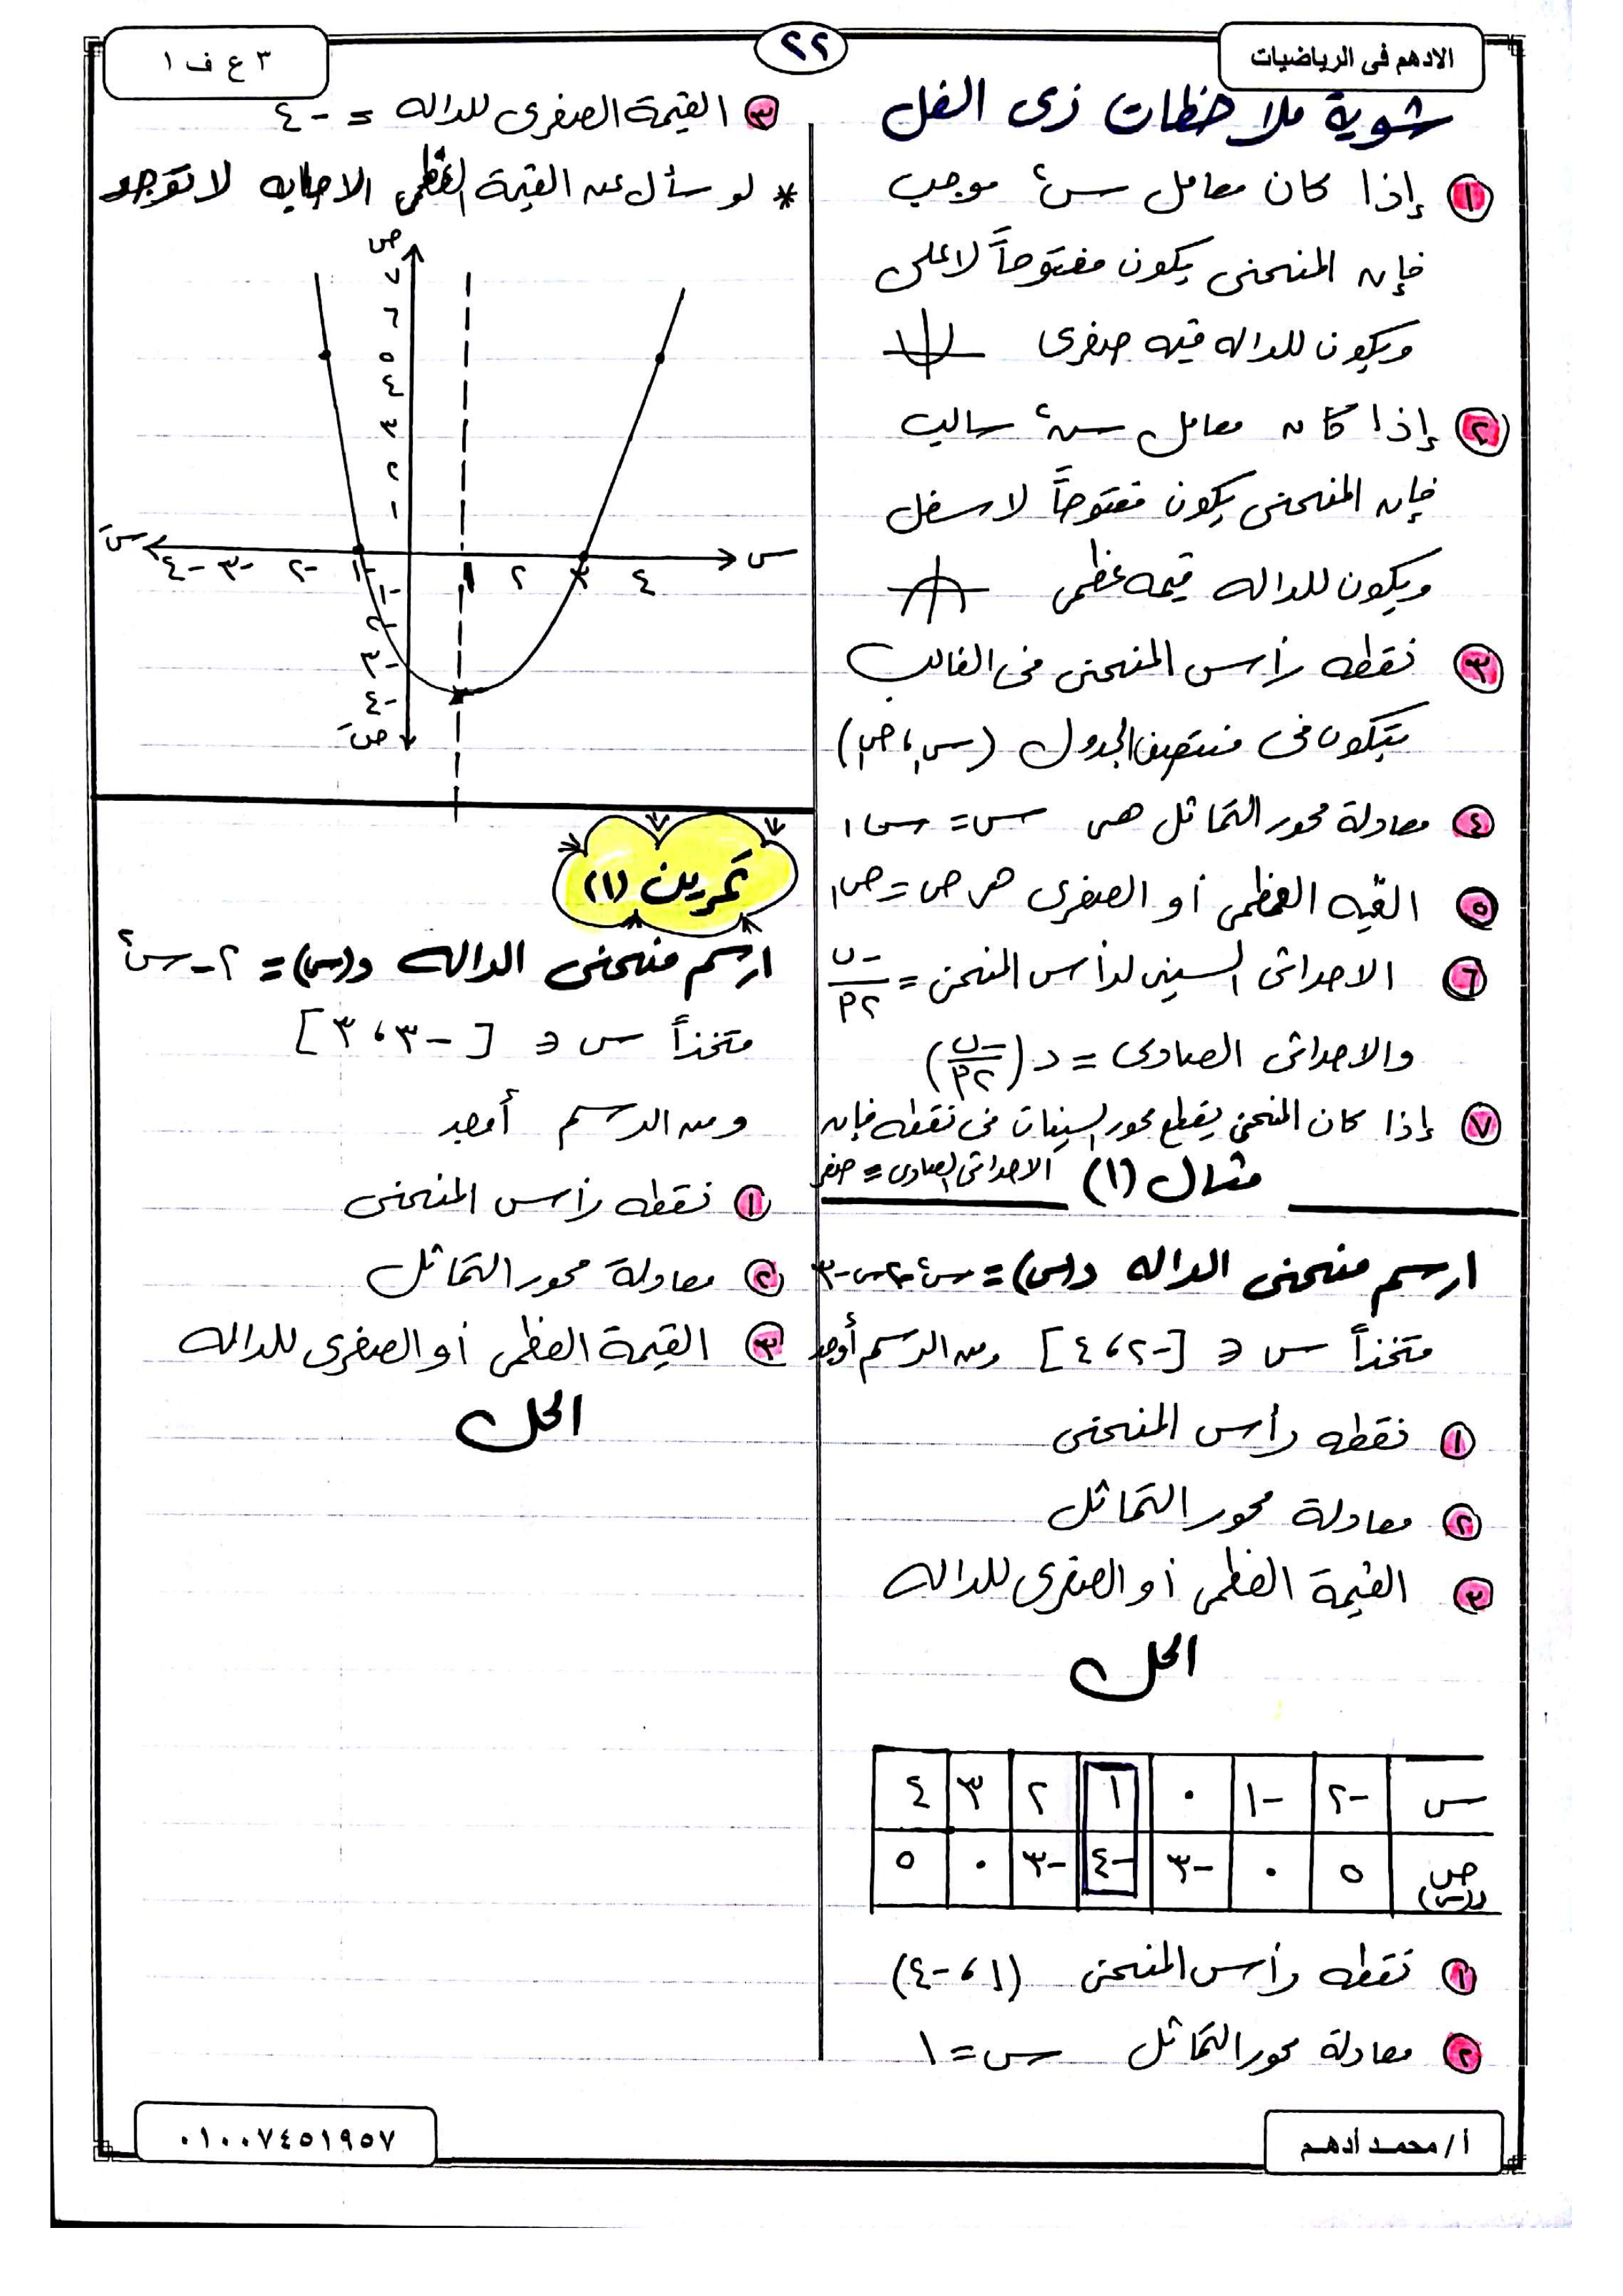 الادهم فى الرياضيات
٢٢
٣ ع ف ١
شوية ملاحظات زى الفل
١ إذا كان معامل س٢ موجب
فإن المنحنى يكون مفتوحاً لاعلى
ويكون للداله قيمه صغرى
٢ إذا كان معامل س٢ سالب
فإن المنحنى يكون مفتوحاً لاسفل
ويكون للداله قيمه عظمى
٣ نقطه رأس المنحنى فى الغالب
بتكون فى منتصف الجدول (س١ ، ص١)
٤ معادلة محور التماثل هى س = س١
٥ القيمه العظمى أو الصغرى هى ص = ص١
٦ الاحداثى السينى لرأس المنحنى = -ب/٢أ
والاحداثى الصادى = د(-ب/٢أ)
٧ إذا كان المنحنى يقطع محور السينات فى نقطه فإن
الاحداثى الصادى = صفر
مثال (١)
ارسم منحنى الداله د(س) = س٢ - ٢س - ٣
متخذاً س ∈ [-٢ ، ٤] ومن الرسم أوجد
١ نقطه رأس المنحنى
٢ معادلة محور التماثل
٣ القيمة العظمى أو الصغرى للداله
الحل
س -٢ -١ ٠ ١ ٢ ٣ ٤
ص د(س) ٥ ٠ -٣ -٤ -٣ ٠ ٥
١ نقطه رأس المنحنى (١ ، -٤)
٢ معادلة محور التماثل س = ١
٣ القيمة الصغرى للداله = -٤
* لو سأل عن القيمة العظمى الاجابه لا توجد
ص
٧
٦
٥
٤
٣
٢
١
سَ -٤ -٣ -٢ -١ ١ ٢ ٣ ٤ س
-١
-٢
-٣
-٤
صَ
تمرين (١)
ارسم منحنى الداله د(س) = ٢ - س٢
متخذاً س ∈ [-٣ ، ٣]
ومن الرسم أوجد
١ نقطه رأس المنحنى
٢ معادلة محور التماثل
٣ القيمة العظمى أو الصغرى للداله
الحل
أ / محمـد أدهـم
٠١٠٠٧٤٥١٩٥٧